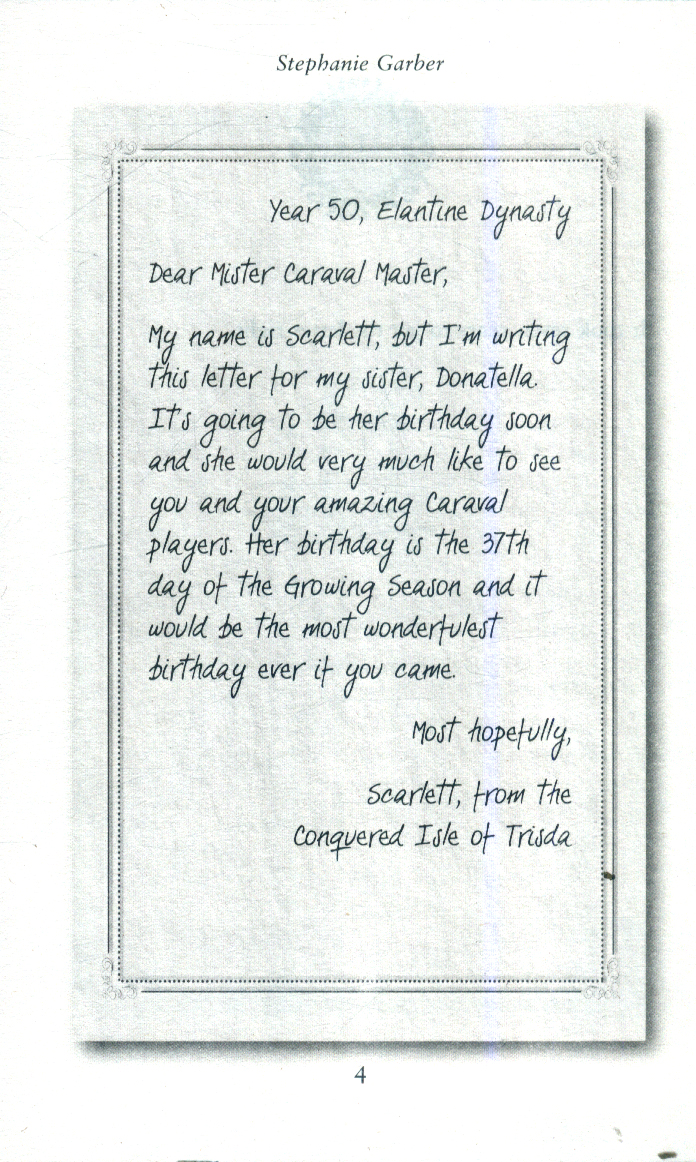 Stephanie Garber
Year 50, Elantine Dynasty
Dear Mister Caraval Master,
My name is Scarlett, but I'm writing
this letter for my sister, Donatella.
It's going to be her birthday soon
and she would very much like to see
you and your amazing Caraval
players. Her birthday is the 37th
day of the Growing Season and it
would be the most wonderfulest
birthday ever if you came.
Most hopefully,
Scarlett, from the
Conquered Isle of Trisda
4